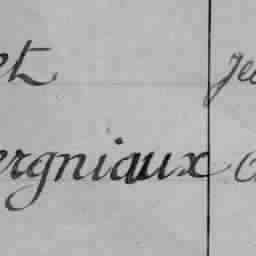 et
ergniaux